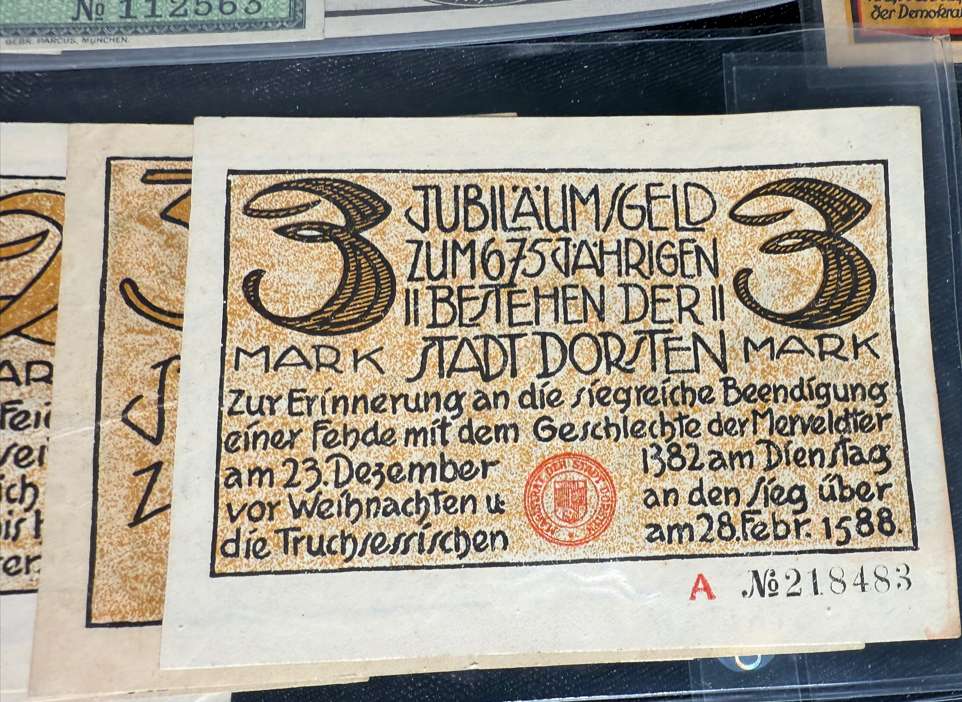 № 112563
GEBR. PARCUS, MÜNCHEN.
der Demokra
3 JUBILÄUMSGELD 3
ZUM 675 JÄHRIGEN
BESTEHEN DER
MARK STADT DORSTEN MARK
Zur Erinnerung an die siegreiche Beendigung
einer Fehde mit dem Geschlechte der Merveldter
am 23. Dezember 1382 am Dienstag
vor Weihnachten u. an den Sieg über
die Truchsessischen am 28. Febr. 1588.
A № 218483